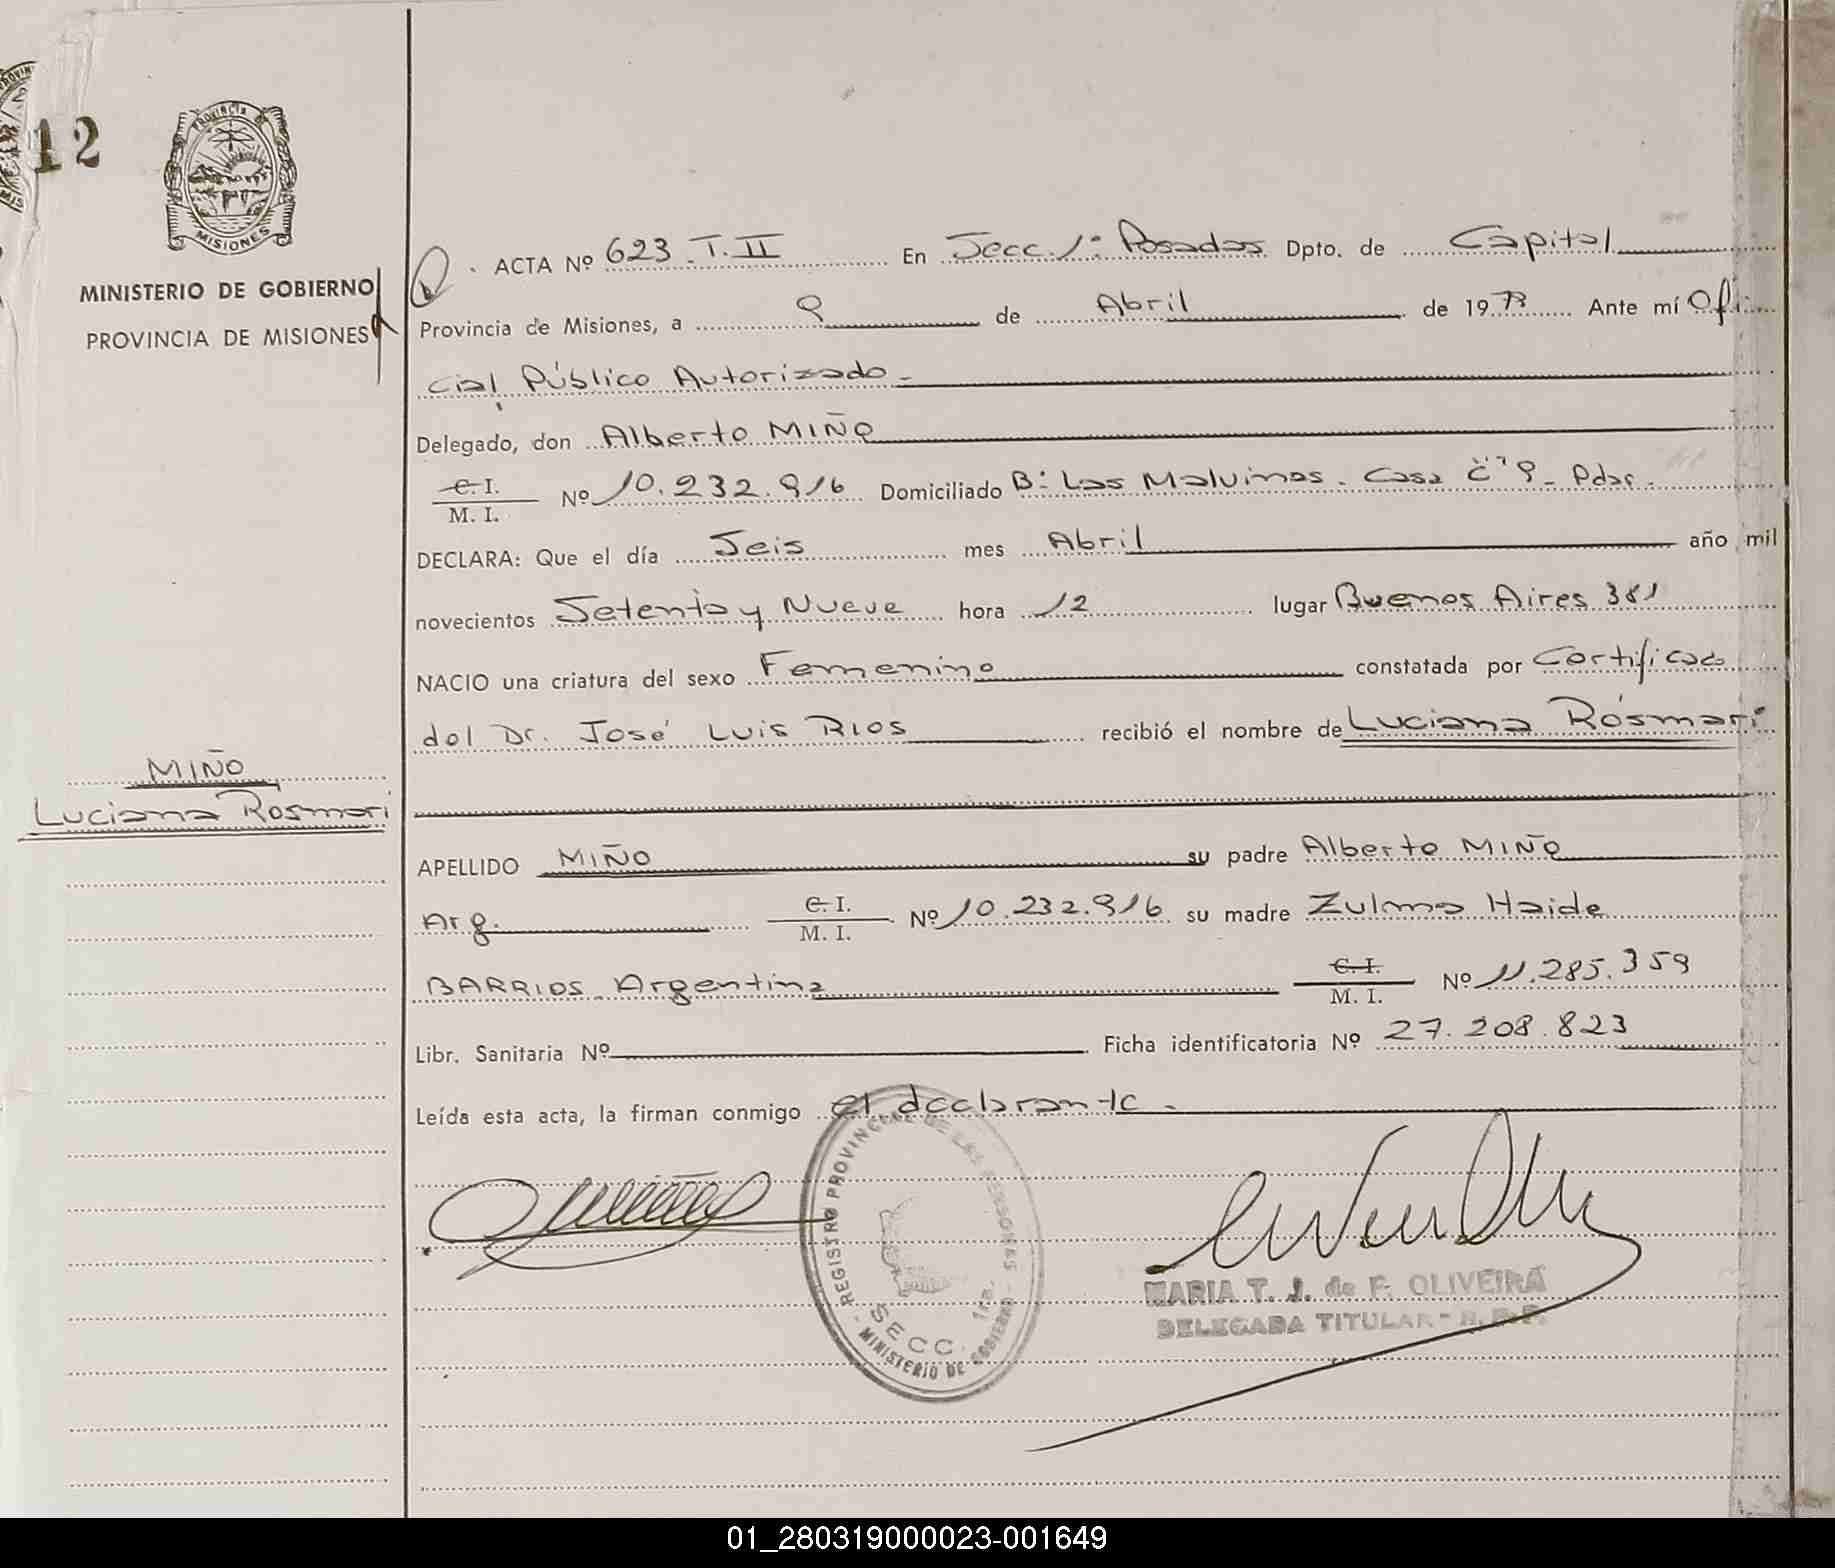 12
PROVINCIA DE
MISIONES
MINISTERIO DE GOBIERNO
PROVINCIA DE MISIONES
ACTA Nº 623 T. II En Secc. 1ª Posadas Dpto. de Capital
Provincia de Misiones, a 9 de Abril de 1979 Ante mí Ofi-
cial Público Autorizado -
Delegado, don Alberto MIÑO
C. I.
M. I. Nº 10.232.916 Domiciliado Bº Las Malvinas - Casa 9 - Pdas.
DECLARA: Que el día Seis mes Abril año mil
novecientos Setenta y Nueve hora 12 lugar Buenos Aires 381
NACIO una criatura del sexo Femenino constatada por Certificado
del Dr. José Luis RIOS recibió el nombre de Luciana Rosmari
MIÑO
Luciana Rosmari
APELLIDO MIÑO su padre Alberto MIÑO
Arg. C. I.
M. I. Nº 10.232.916 su madre Zulma Haide
BARRIOS Argentina C. I.
M. I. Nº 11.285.359
Libr. Sanitaria Nº Ficha identificatoria Nº 27.208.823
Leída esta acta, la firman conmigo el declarante -
REGISTRO PROVINCIAL DE LAS PERSONAS
SECC. 1ra.
MINISTERIO DE GOBIERNO
MARIA T. J. de F. OLIVEIRA
DELEGADA TITULAR - R. P. P.
01_280319000023-001649